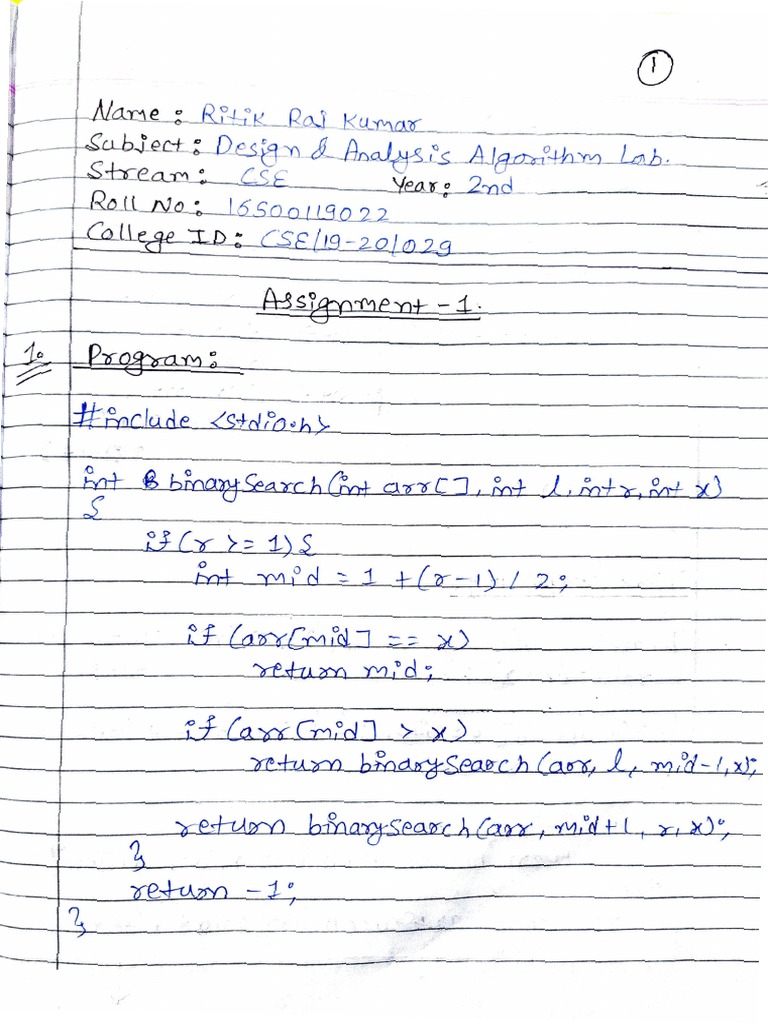 1
Name: Ritik Raj Kumar
Subject: Design & Analysis Algorithm Lab.
Stream: CSE Year: 2nd
Roll No: 16500119022
College ID: CSE/19-20/029
Assignment-1.
1. Program:
#include <stdio.h>
int binarySearch(int arr[], int l, int r, int x)
{
if(r >= 1){
int mid = 1 + (r-1) / 2;
if (arr[mid] == x)
return mid;
if (arr[mid] > x)
return binarySearch(arr, l, mid-1, x);
return binarySearch(arr, mid+1, r, x);
}
return -1;
}